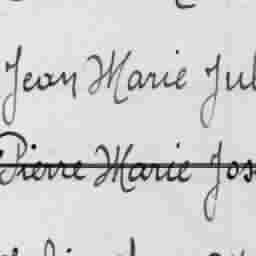 Jean Marie Jul
Pierre Marie Jos